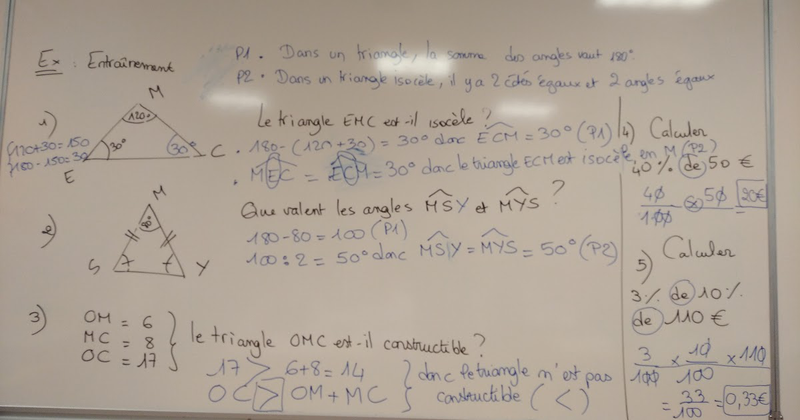 Ex : Entraînement
P1. Dans un triangle, la somme des angles vaut 180°.
P2. Dans un triangle isocèle, il y a 2 côtés égaux et 2 angles égaux
1)
M
120°
30°
30°
E
C
120+30=150
180-150=30
Le triangle EMC est-il isocèle ?
. 180-(120+30) = 30° donc ECM = 30° (P1)
. MEC = ECM = 30° donc le triangle ECM est isocèle en M (P2)
2)
M
80°
S
Y
Que valent les angles MSY et MYS ?
180-80 = 100 (P1)
100 : 2 = 50° donc MSY = MYS = 50° (P2)
3)
OM = 6
MC = 8
OC = 17
le triangle OMC est-il constructible ?
17 > 6+8 = 14
OC > OM + MC
donc le triangle n'est pas
constructible (<)
4) Calculer
40 % de 50 €
40/100 × 50 = 20€
5) Calculer
3% de 10%
de 110 €
3/100 × 10/100 × 110
= 33/100 = 0,33€